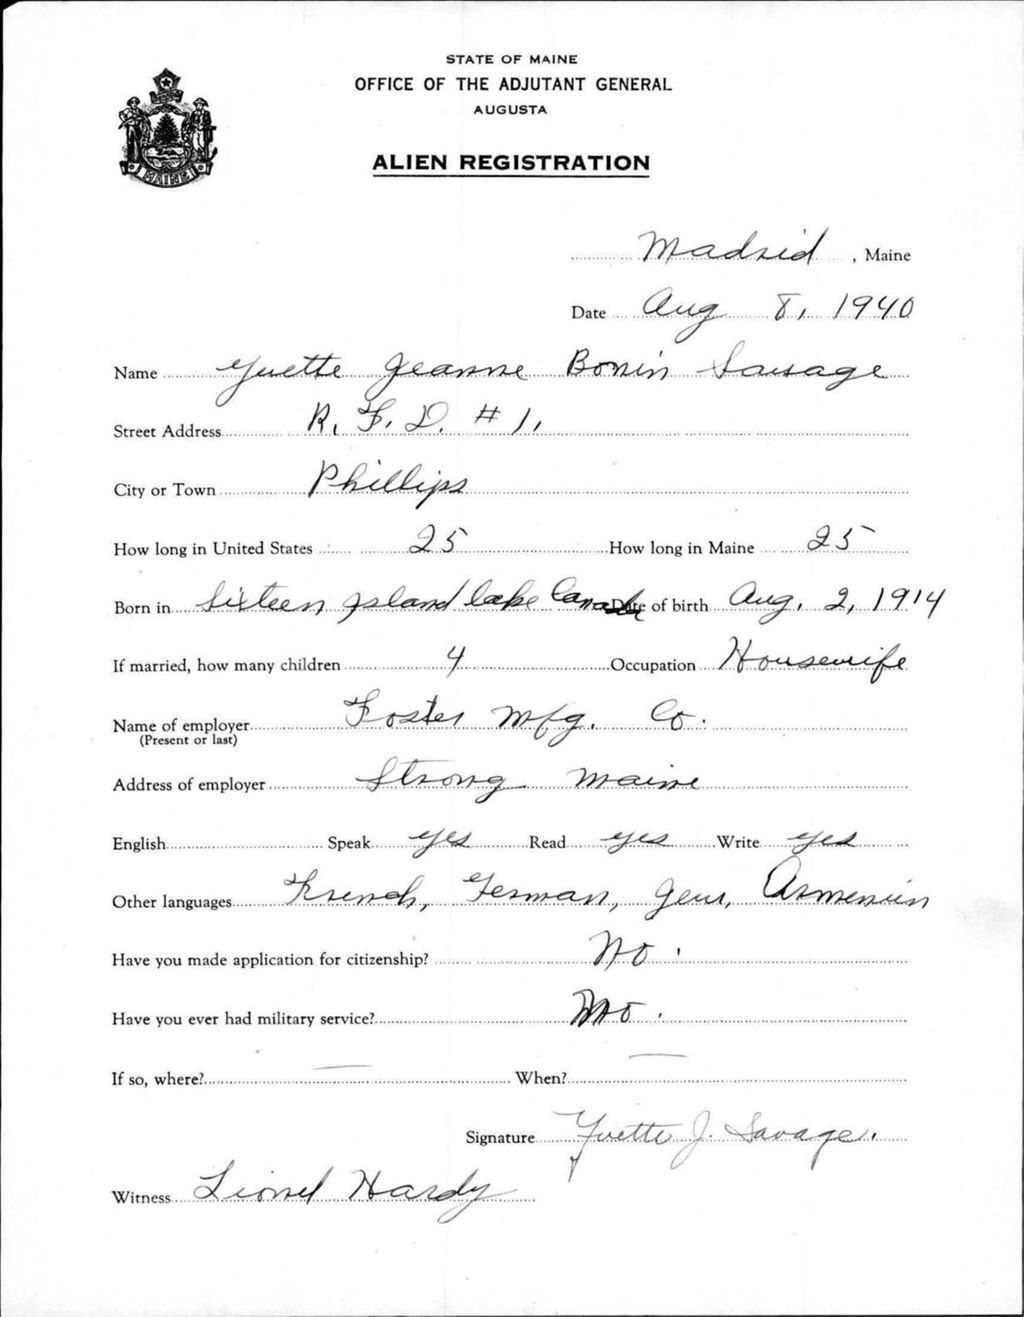 STATE OF MAINE
OFFICE OF THE ADJUTANT GENERAL
AUGUSTA
ALIEN REGISTRATION
MAINE
Madrid, Maine
Date Aug 8, 1940
Name Yvette Jeanne Bonin Sausage
Street Address R. F. D. # 1,
City or Town Phillips
How long in United States 25 How long in Maine 25
Born in Sixteen Island Lake Canada Date of birth Aug. 2, 1914
If married, how many children 4 Occupation Housewife
Name of employer Foster Mfg. Co.
(Present or last)
Address of employer Strong Maine
English Speak yes Read yes Write yes
Other languages French, German, Jew, Armenian
Have you made application for citizenship? No.
Have you ever had military service? No.
If so, where? — When? —
Signature Yvette J. Savage.
Witness Lionel Hardy